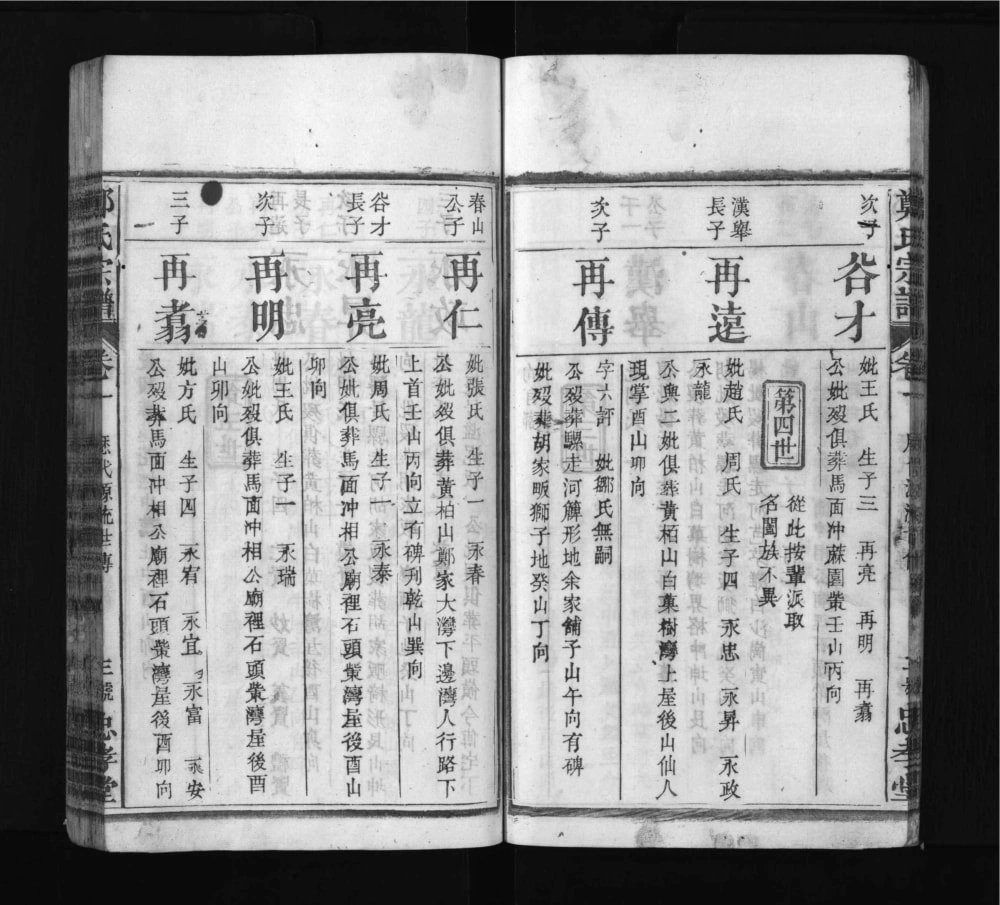 次子
谷才
妣王氏 生子三 再亮 再明 再翥
公妣歿俱葬馬面冲蔴園塋壬山丙向
第四世
從此按輩派取
名闔族不異
漢舉
長子
再遠
妣趙氏 周氏 生子四 永忠 永昇 永政
永龍
公與二妣俱葬黄栢山白菓樹灣上屋後山仙人
現掌酉山卯向
次子
再傳
字六評 妣鄒氏無嗣
公歿葬騾走河 形地余家舖子山午向有碑
妣歿葬胡家畈獅子地癸山丁向
春山
公子
再仁
妣張氏 生子一 永春
公妣歿俱葬黄柏山鄭家大灣下邊灣人行路下
上首壬山丙向立有碑刋乾山巽向
谷才
長子
再亮
妣周氏 生子一 永泰
公妣俱葬馬面冲相公廟裡石頭塋灣屋後酉山
卯向
次子
再明
妣王氏 生子一 永瑞
公妣歿俱葬馬面冲相公廟裡石頭塋灣屋後酉
山卯向
三子
再翥
妣方氏 生子四 永宥 永宜 永富 永安
公歿葬馬面冲相公廟裡石頭塋灣屋後酉卯向
鄭氏宗譜
卷一
歷代源流世傳
忠孝堂